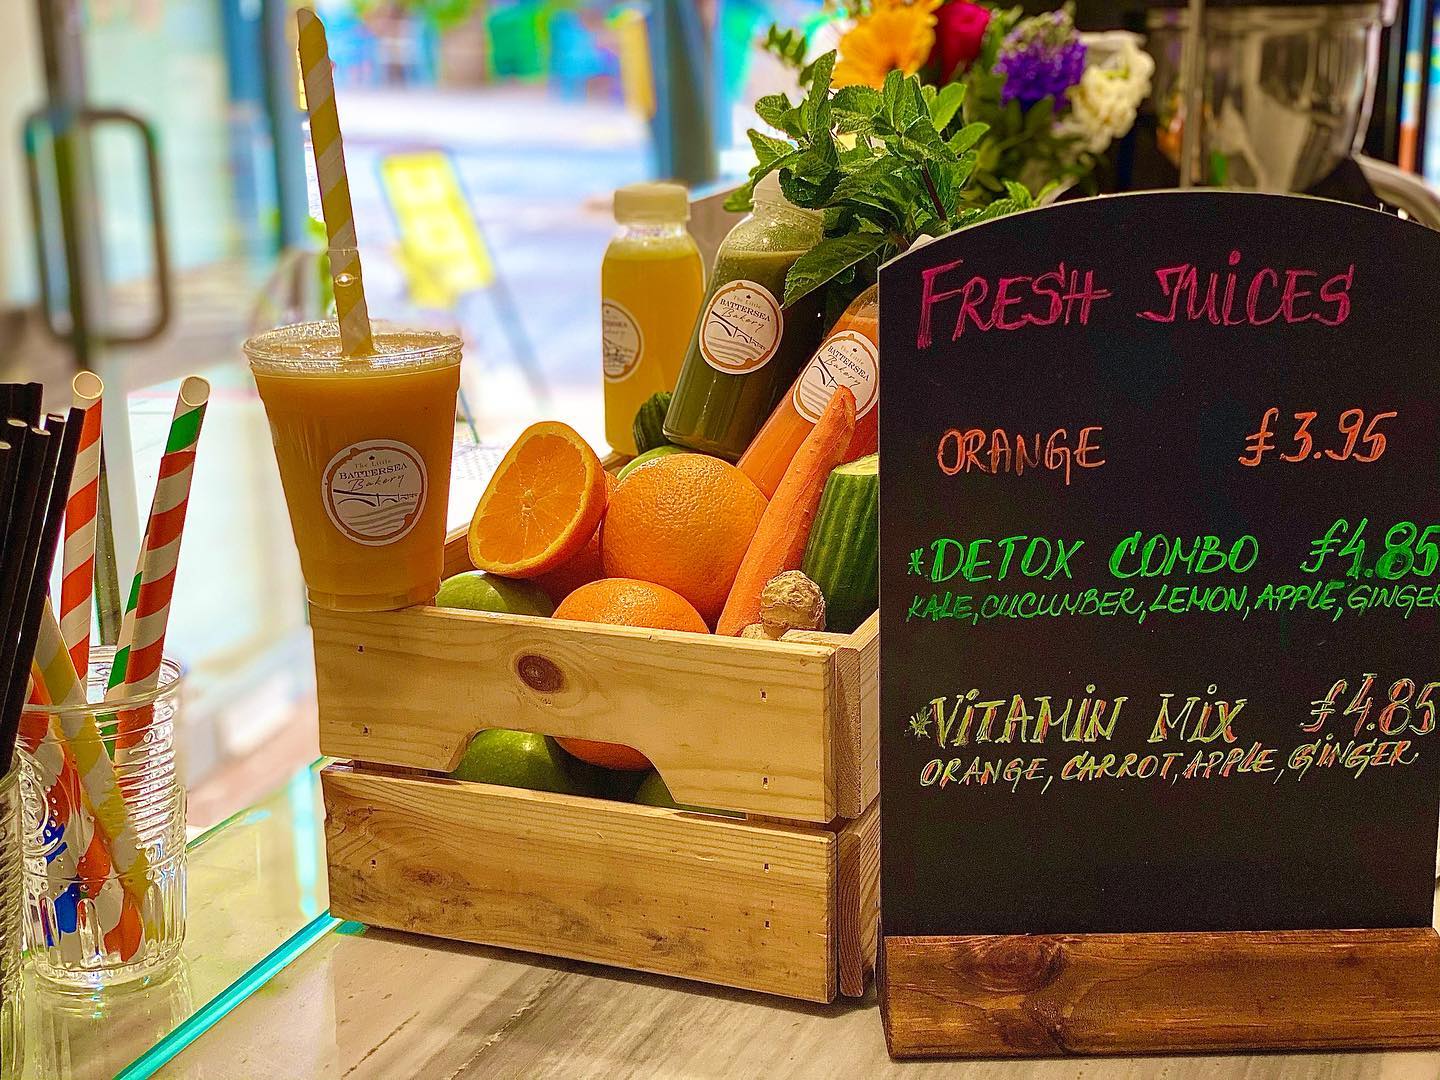 The Little
BATTERSEA
Bakery
The Little
BATTERSEA
Bakery
The Little
BATTERSEA
Bakery
FRESH JUICES
ORANGE £3.95
*DETOX COMBO £4.85
KALE, CUCUMBER, LEMON, APPLE, GINGER
*VITAMIN MIX £4.85
ORANGE, CARROT, APPLE, GINGER